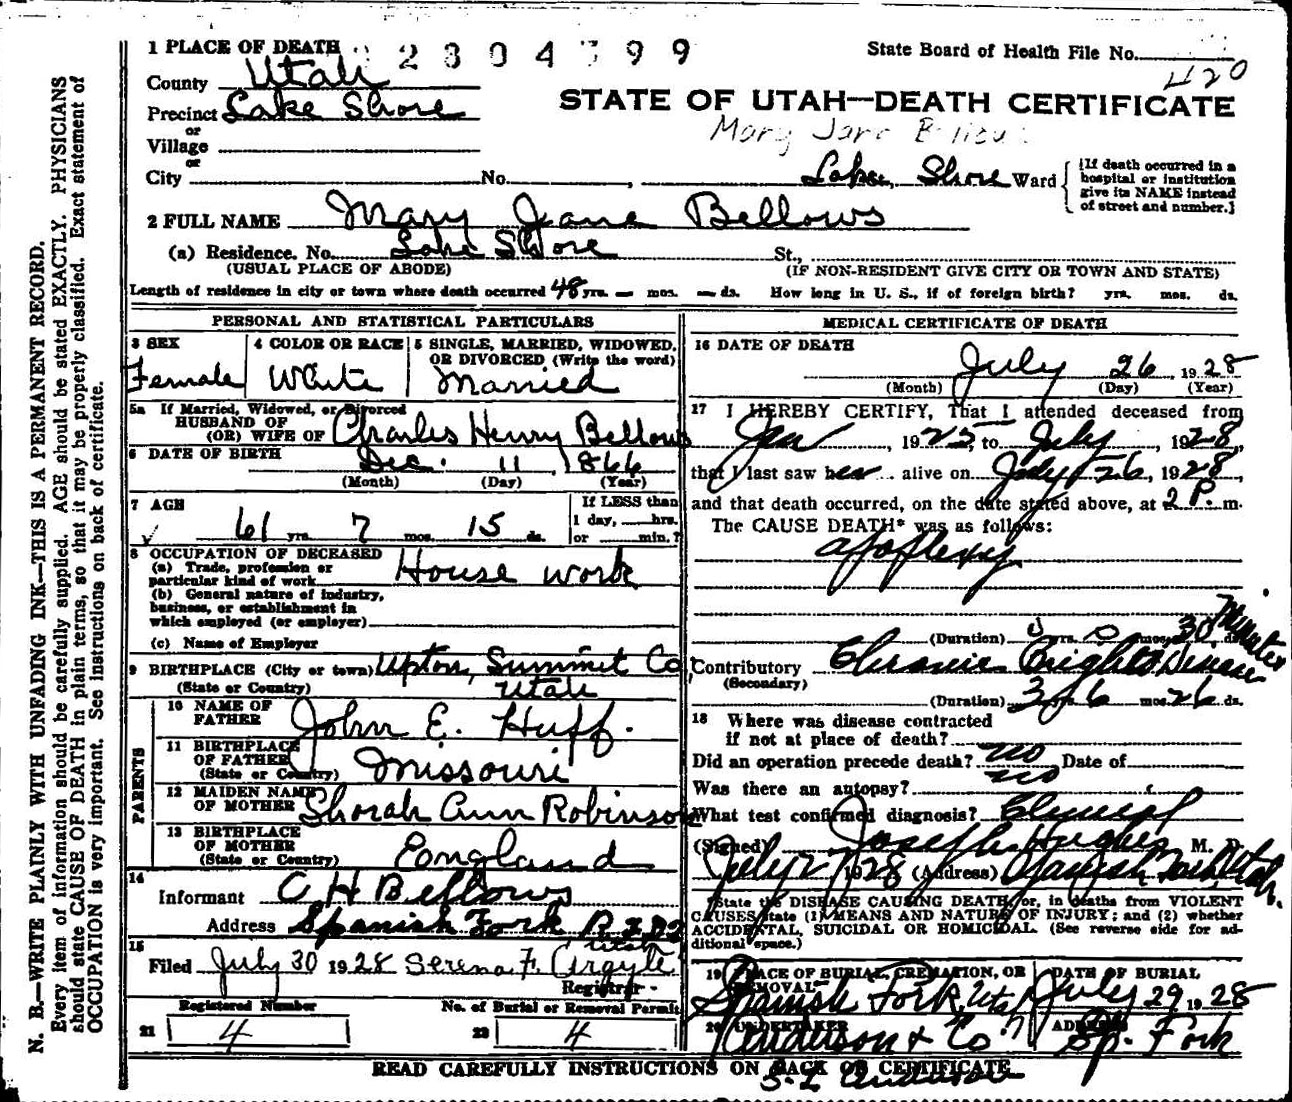 1 PLACE OF DEATH 2 3 0 4 7 9 9 State Board of Health File No.
County Utah 420
Precinct Lake Shore STATE OF UTAH—DEATH CERTIFICATE
or
Village Mary Jane
or
City No. , Lake Shore Ward { [If death occurred in a hospital or institution give its NAME instead of street and number.]
2 FULL NAME Mary Jane Bellows
(a) Residence. No. Lake Shore St.,
(USUAL PLACE OF ABODE) (IF NON-RESIDENT GIVE CITY OR TOWN AND STATE)
Length of residence in city or town where death occurred 48 yrs. — mos. — ds. How long in U. S., if of foreign birth? yrs. mos. ds.
PERSONAL AND STATISTICAL PARTICULARS
3 SEX
Female
4 COLOR OR RACE
White
5 SINGLE, MARRIED, WIDOWED,
OR DIVORCED (Write the word)
Married
5a If Married, Widowed, or Divorced
HUSBAND OF
(OR) WIFE OF Charles Henry Bellows
6 DATE OF BIRTH Dec. 11, 1866
(Month) (Day) (Year)
7 AGE
61 yrs. 7 mos. 15 ds.
If LESS than
1 day, hrs.
or min.?
8 OCCUPATION OF DECEASED
(a) Trade, profession or
particular kind of work House work
(b) General nature of industry,
business, or establishment in
which employed (or employer)
(c) Name of Employer
9 BIRTHPLACE (City or town) Upton, Summit Co,
(State or Country) Utah
PARENTS
10 NAME OF
FATHER John E. Huff.
11 BIRTHPLACE
OF FATHER
(State or Country) Missouri
12 MAIDEN NAME
OF MOTHER Shorah Ann Robinson
13 BIRTHPLACE
OF MOTHER
(State or Country) Eongland
14
Informant C H Bellows
Address Spanish Fork R F D 2
Utah
15
Filed July 30 1928 Serena F. Argyle
Registrar
Registered Number No. of Burial or Removal Permit
21 4 22 4
MEDICAL CERTIFICATE OF DEATH
16 DATE OF DEATH
July 26, 1928
(Month) (Day) (Year)
17 I HEREBY CERTIFY, That I attended deceased from
Jan, 1925, to July, 1928,
that I last saw her alive on July 26, 1928,
and that death occurred, on the date stated above, at 2 P. m.
The CAUSE DEATH* was as follows:
apoplexy
(Duration) 0 yrs. 0 mos. 30 ds. Minutes
Contributory Chronic Brights Disease
(Secondary)
(Duration) 3 y 6 mos. 26 ds.
18 Where was disease contracted
if not at place of death?
Did an operation precede death? no Date of
Was there an autopsy? no
What test confirmed diagnosis? Clinical
(Signed) Joseph Hughes M. D.
July 27 1928 (Address) Spanish Fork Utah.
*State the DISEASE CAUSING DEATH, or, in deaths from VIOLENT
CAUSES, state (1) MEANS AND NATURE OF INJURY; and (2) whether
ACCIDENTAL, SUICIDAL OR HOMICIDAL. (See reverse side for ad-
ditional space.)
19 PLACE OF BURIAL, CREMATION, OR
REMOVAL
Spanish Fork, Utah
DATE OF BURIAL
July 29 1928
20 UNDERTAKER
Anderson & Co
ADDRESS
Sp. Fork
READ CAREFULLY INSTRUCTIONS ON BACK OF CERTIFICATE
Anderson
N. B.—WRITE PLAINLY WITH UNFADING INK—THIS IS A PERMANENT RECORD.
Every item of information should be carefully supplied. AGE should be stated EXACTLY. PHYSICIANS
should state CAUSE OF DEATH in plain terms, so that it may be properly classified. Exact statement of
OCCUPATION is very important. See instructions on back of certificate.